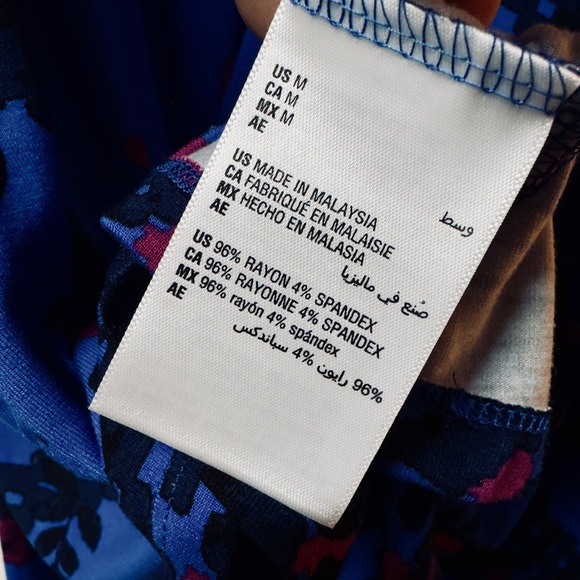 US M
CA M
MX M
AE وسط
US MADE IN MALAYSIA
CA FABRIQUÉ EN MALAISIE
MX HECHO EN MALASIA
AE صُنع في ماليزيا
US 96% RAYON 4% SPANDEX
CA 96% RAYONNE 4% SPANDEX
MX 96% rayón 4% spándex
AE 96% رايون 4% سباندكس